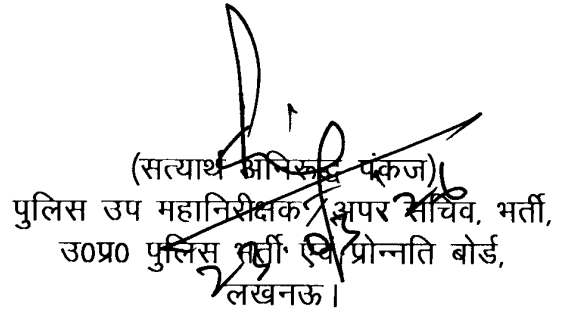 (सत्यार्थ अनिरूद्ध पंकज)
पुलिस उप महानिरीक्षक / अपर सचिव, भर्ती,
उ०प्र० पुलिस भर्ती एवं प्रोन्नति बोर्ड,
लखनऊ।